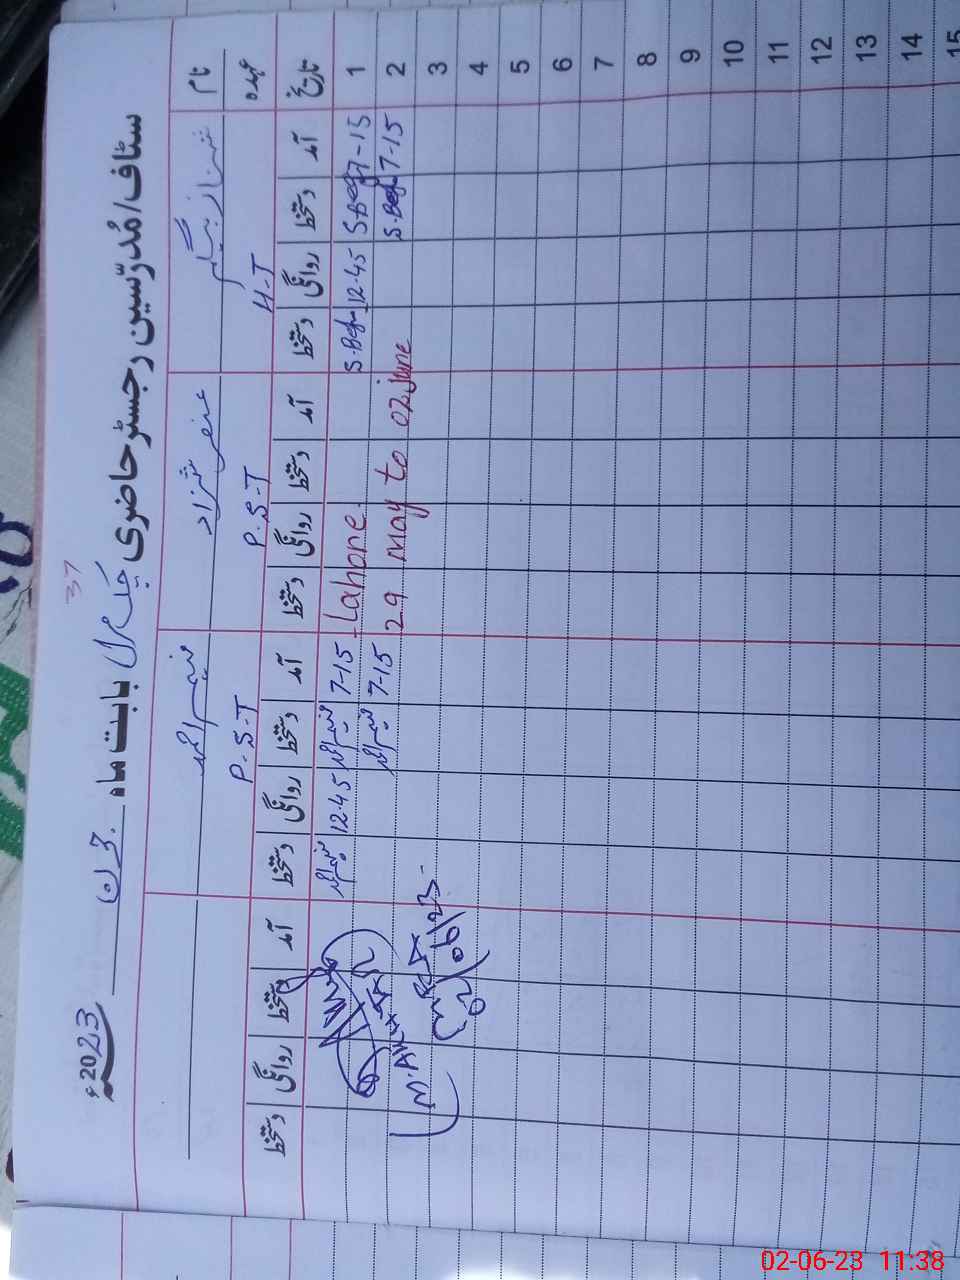 37
سٹاف/مُدرّسین رجسٹر حاضری چک بابت ماہ جون 2023ء
نام شہناز بیگم شہزاد نسیم احمد
عہدہ H-T P.S-T P.S-T
تاریخ آمد دستخط روانگی دستخط آمد دستخط روانگی دستخط آمد دستخط روانگی دستخط آمد دستخط روانگی دستخط
1 7-15 S.Begm 12.45 S.Begm Lahore. 7-15 12.45
2 7-15 S.Begm 29 May to 02 June 7-15
3
4
5
6
7
8
9
10
11
12
13
14
15
02/06/23
02-06-23 11:38